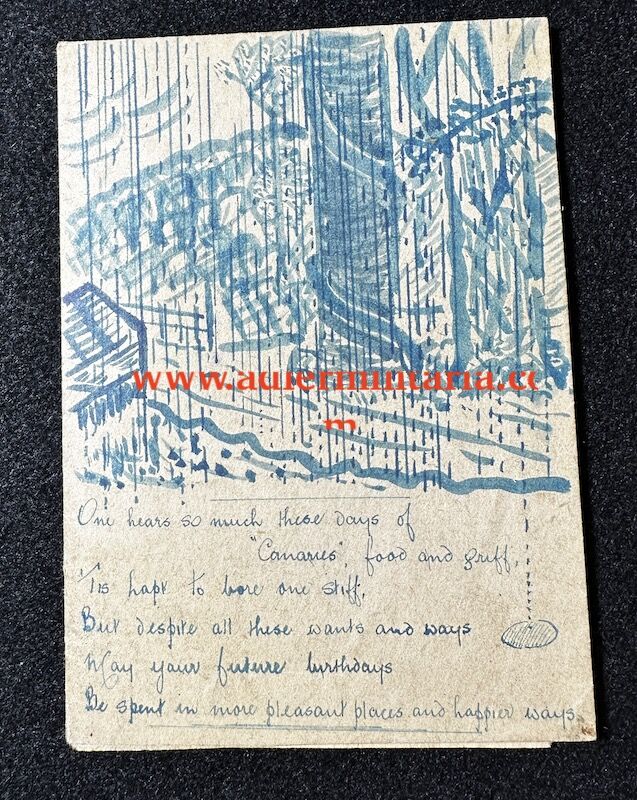 www.aufermilitaria.co
m
One hears so much these days of
"Canaries", food and griff,
'Tis hapt to bore one stiff,
But despite all these wants and ways
May your future birthdays
Be spent in more pleasant places and happier ways.